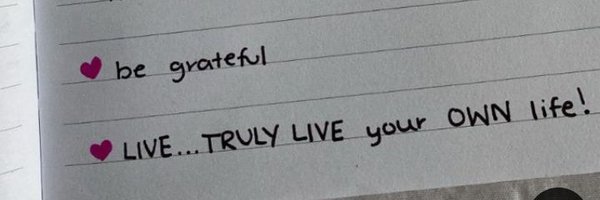 be grateful
LIVE...TRULY LIVE your OWN life!